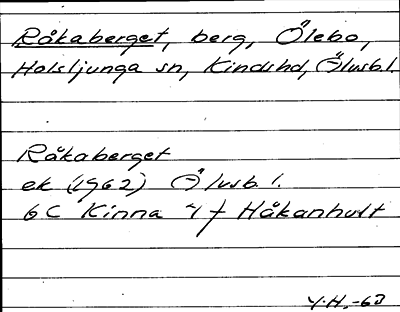 Råkaberget, berg, Ölebo,
Holsljunga sn, Kindshd, Älvsb.l.
Råkaberget
ek (1962) Älvsb. l.
6 C Kinna 4 f Håkanhult
Y.H. -63